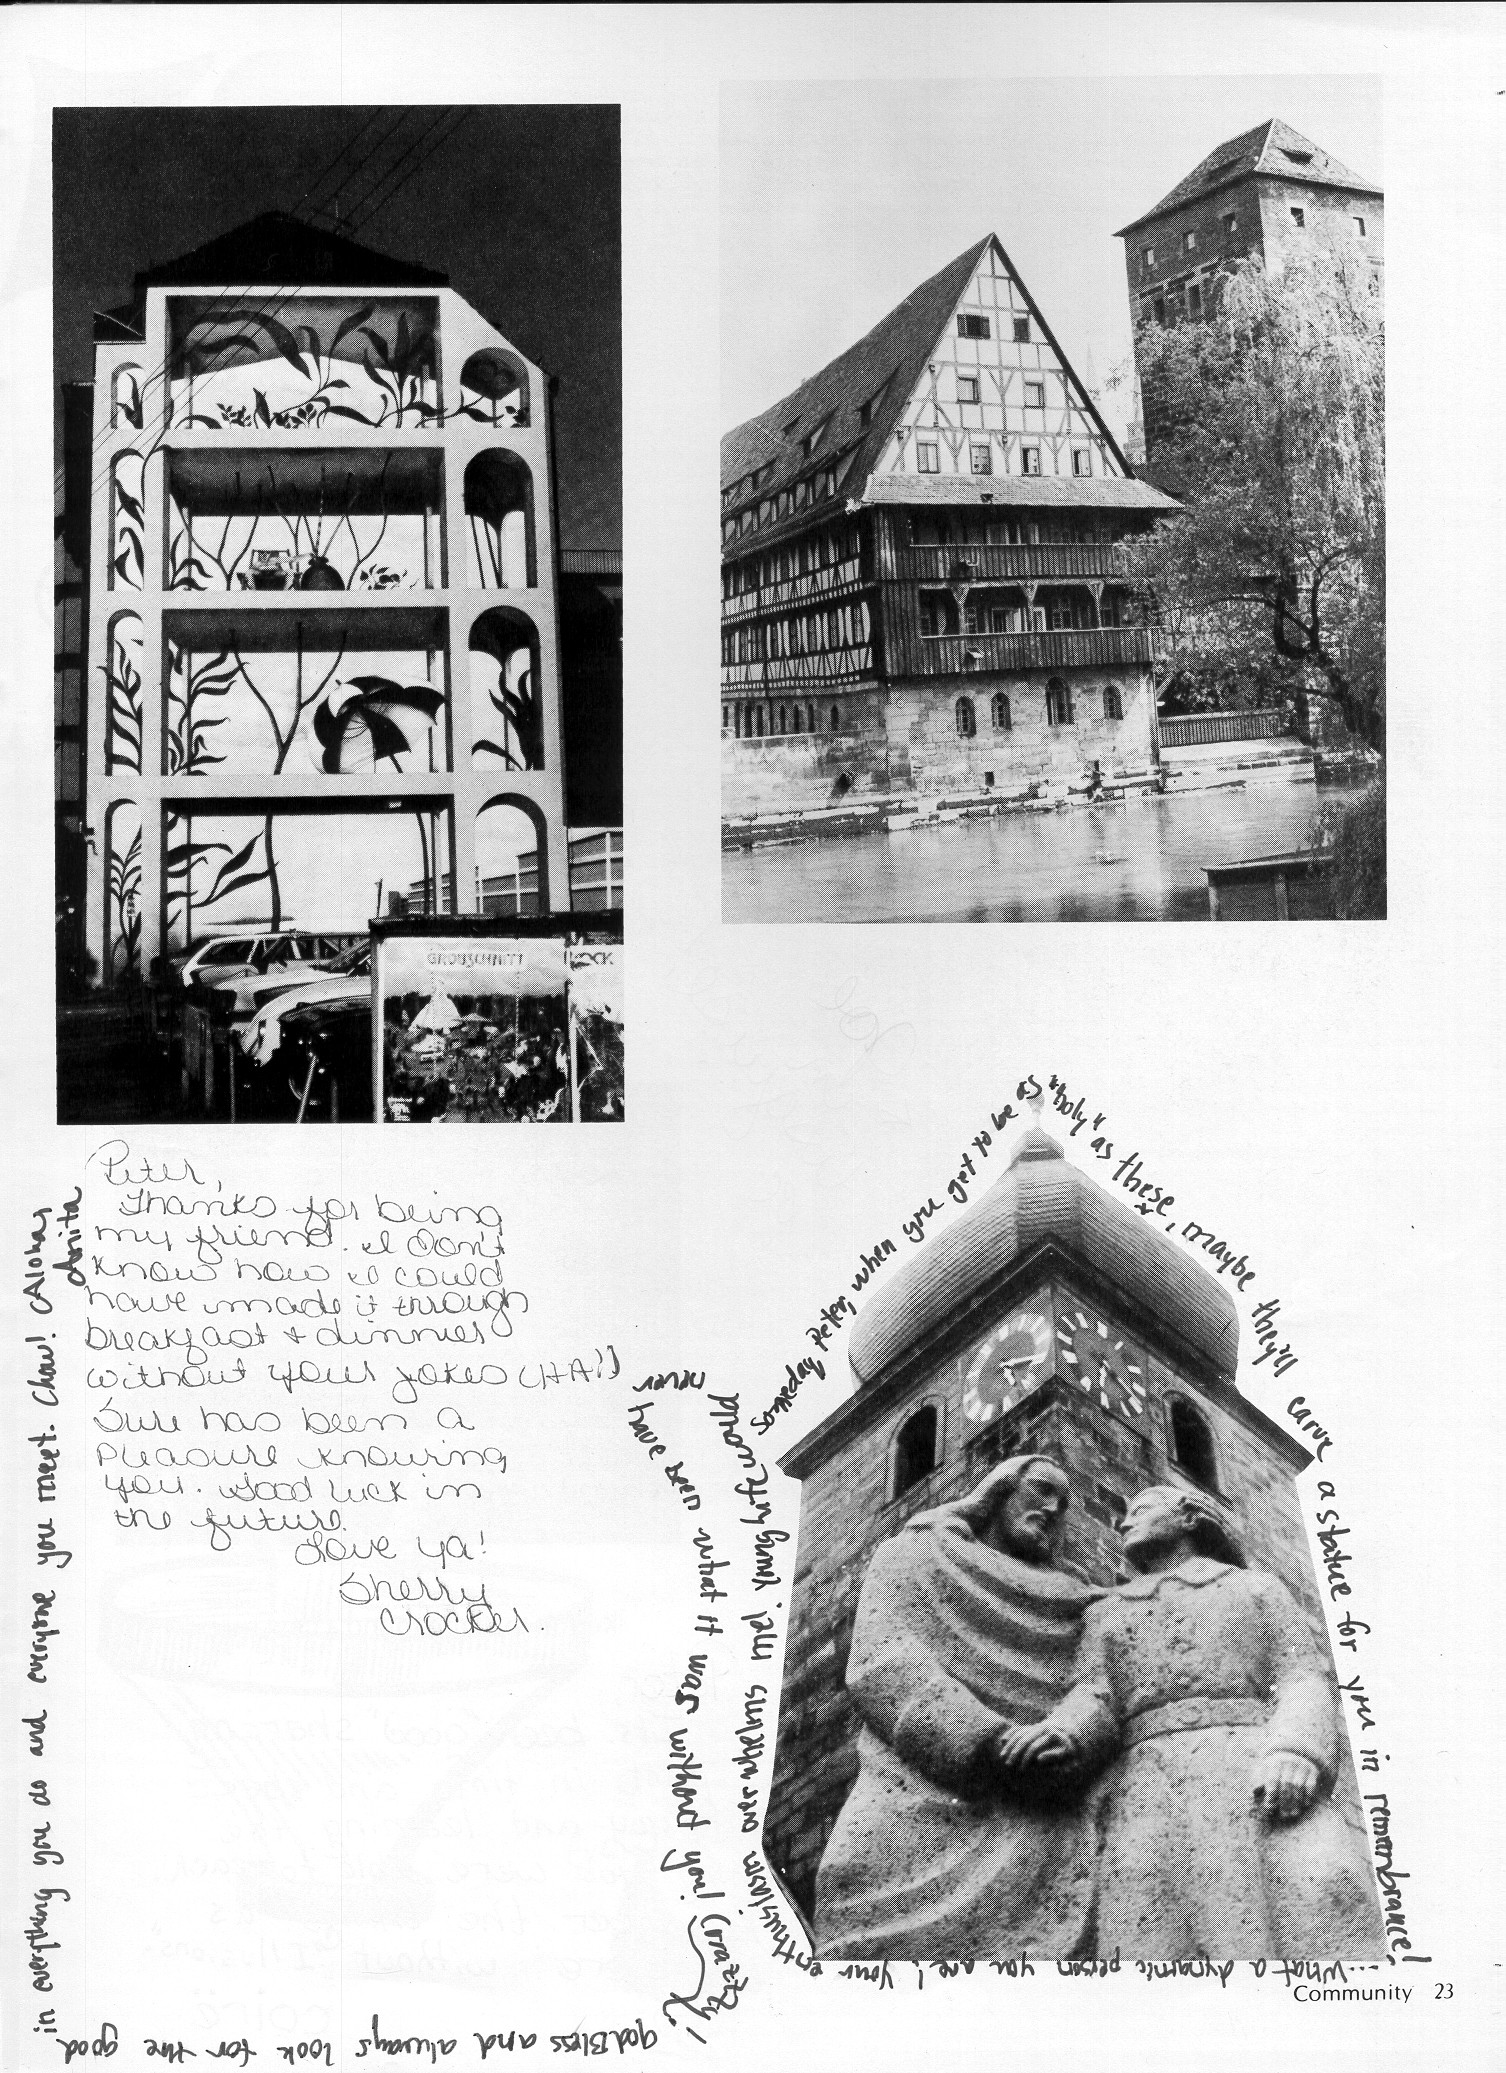 GROBSCHNITT
ROCK
Peter,
Thanks for being
my friend. I don't
know how I could
have made it through
breakfast & dinner
without your jokes (HA!)
Sure has been a
pleasure knowing
you. Good luck in
the future.
Love ya!
Sherry
Crocker.
Someday Peter, when you get to be as "holy" as these, maybe they'll carve a statue for you in remembrance!
....What a dynamic person you are! Your
enthusiasm over whelms me! Young Life would
never have been what it was without you! (Crazzzzy!
God Bless and always look for the good
in everything you do and everyone you meet. Chow! Alohas
Anita
Community 23